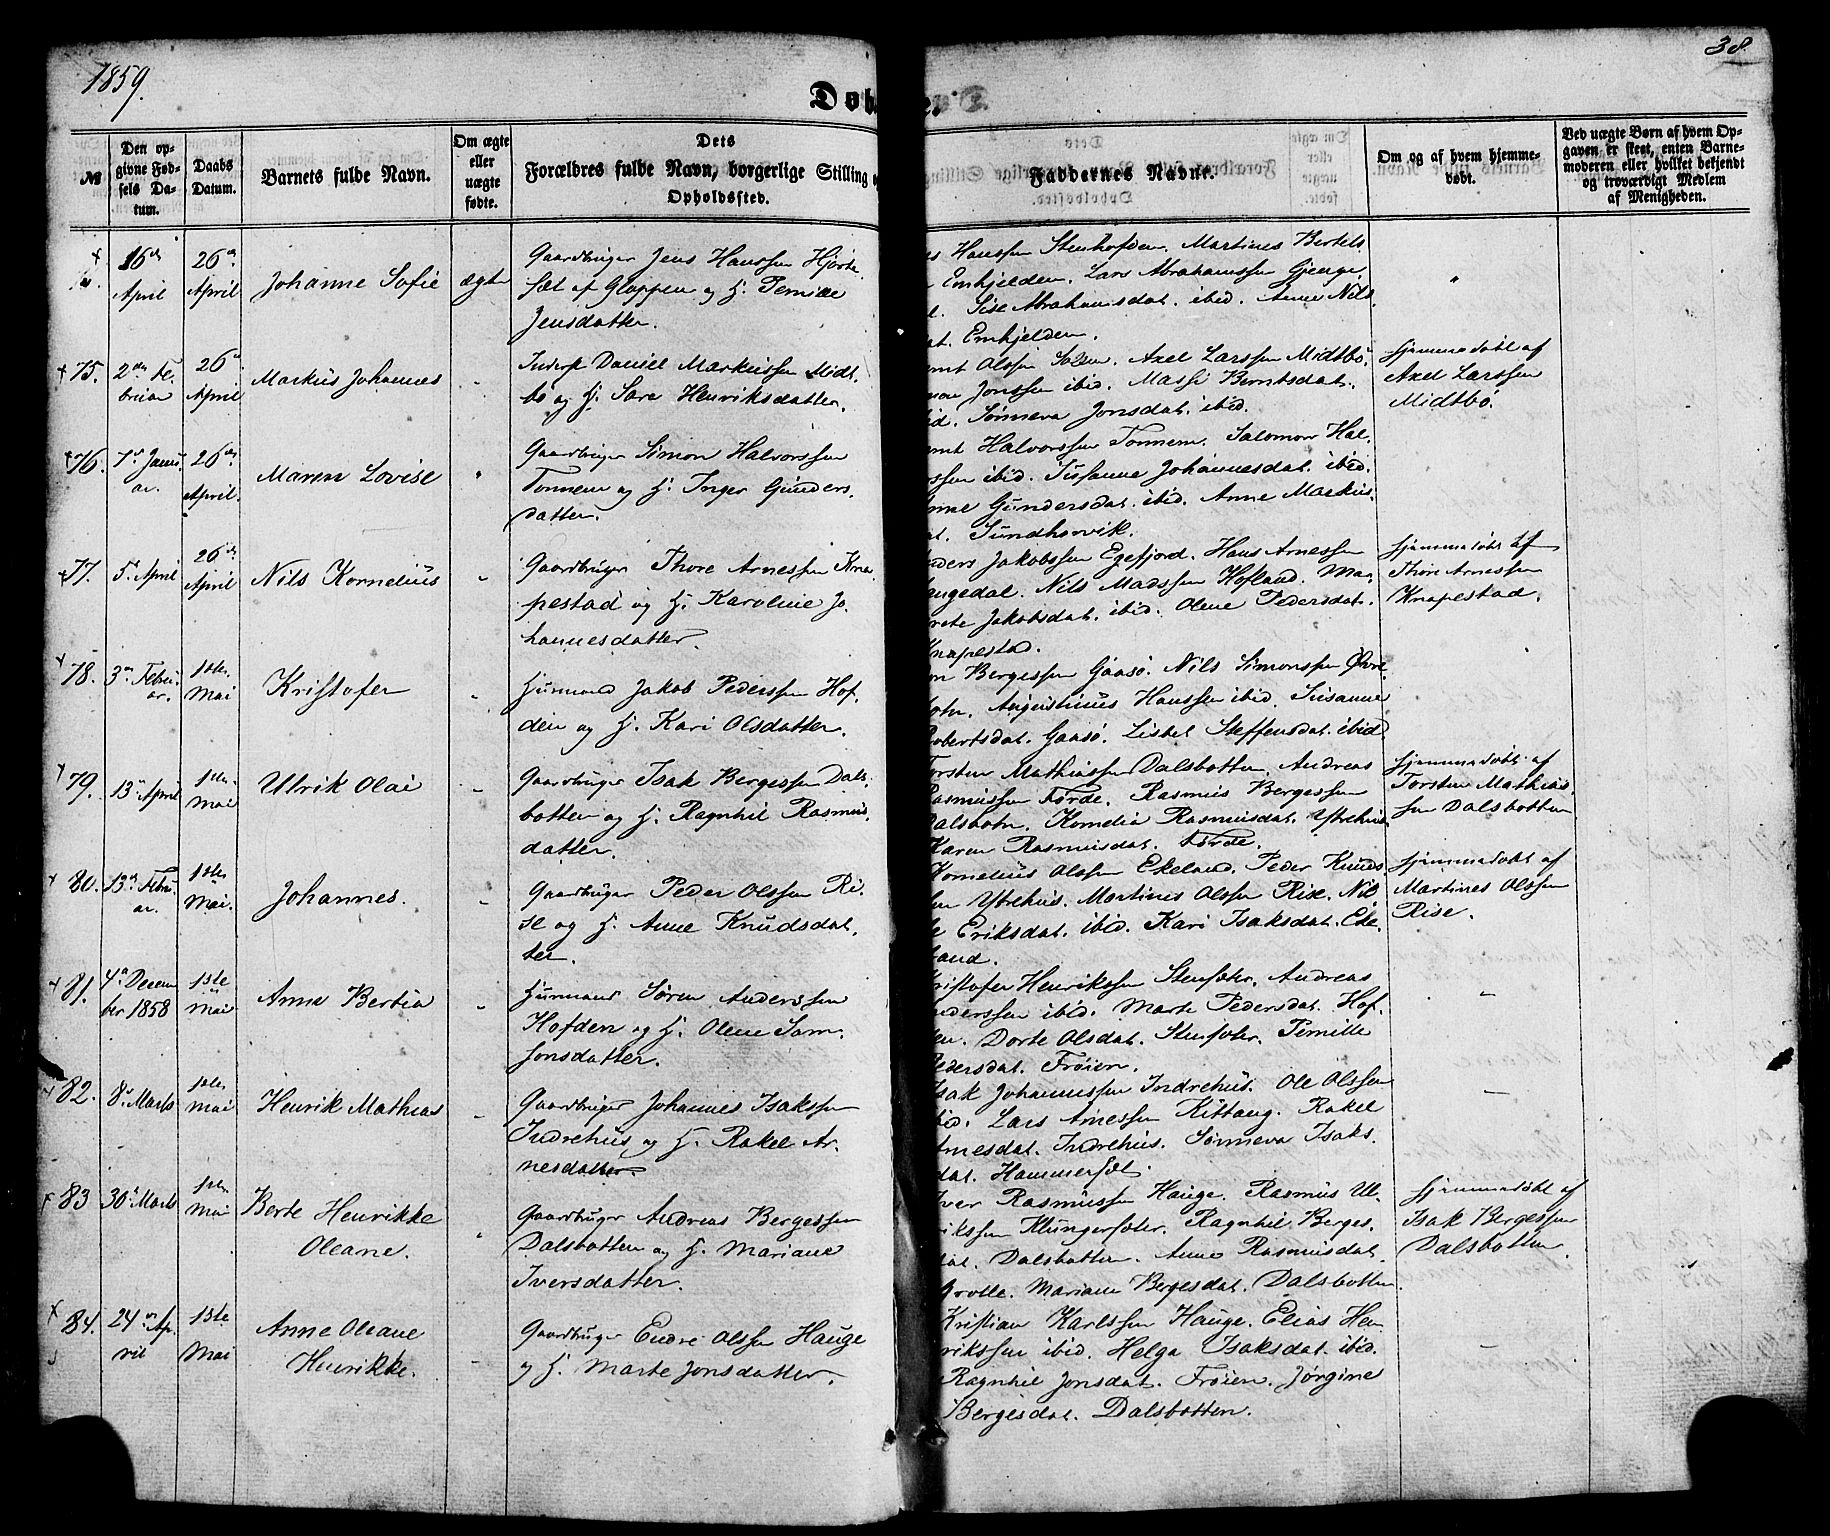 1859.
38.
Døb
e.
№
Den op-
givne Fød-
sels Da-
tum.
Daabs
Datum.
Barnets fulde Navn.
Om ægte
eller
uægte
fødte.
Dets
Forældres fulde Navn, borgerlige Stilling o
Opholdssted.
Faddernes Navne.
Om og af hvem hjemme-
døbt.
Ved uægte Børn af hvem Op-
gaven er skeet, enten Barne-
moderen eller hvilket bekjendt
og troværdigt Medlem
af Menigheden.
16de April
26de April
Johanne Sofie
ægte
Gaardbruger Jens Hanssen Hjorte-
sæt af Gloppen og H. Pernille
Jensdatter.
s Hanssen Stenhofden. Martines Bertels
Emhjelden. Lars Abrahamssen Gjenge
l. Sise Abrahamsdat. ibid. Anne Nils
at. Emhjelden.
75.
2den Fe-
bruar
26d April
Markus Johannes
Inderst Daniel Markussen Midt-
bö og H. Sara Henriksdatter.
mt Olssen Solsen. Axel Larssen Midtbö.
mon Jonssen ibid. Massi Berntsdat.
id. Sönneva Jonsdat. ibid.
Hjemmedøbt af
Axel Larssen
Midtbö.
76.
7d Janu-
ar.
26de April.
Maren Lovise
Gaardbruger Simon Halvorssen
Tonnem og H. Inger Gunders-
datter.
mt Halvorssen Tonnem. Salomon Hal-
rssen ibid. Susanne Johannesdat. ibid.
nne Gundersdat. ibid. Anne Markus-
at. Sundhorvik.
77.
5t April
26de April
Nils Kornelius
Gaardbruger Thore Arnessen Kna-
pestad og H. Karoline Jo-
hannesdatter.
nders Jakobssen Egefjord. Hans Arnessen
engedal. Nils Madssen Hofland. Ma-
rete Jakobsdat. ibid. Olene Pedersdat.
Knapestad.
Hjemmedøbt af
Thore Arnessen
Knapestad.
78.
3die Febru-
ar.
1ste Mai
Kristofer
Huusmand Jakob Pederssen Hof-
den og H. Kari Olsdatter.
on Bergessen Gaasö. Nils Simonssen Øvre
botn. Augustinus Hanssen ibid. Susanne
Robertsdat. Gaasö. Lisbet Steffensdat. ibid
79.
13de April
1ste Mai
Ulrik Olai
Gaardbruger Isak Bergessen Dals-
botten og H. Ragnhil Rasmus-
datter.
Torsten Mathiassen Dalsbotten. Andreas
Rasmussen Förde. Rasmus Bergessen
Dalsbotn. Kornelia Rasmusdat. Ytrehus.
Karen Rasmusdat. Förde.
Hjemmedøbt af
Torsten Mathias-
sen Dalsbotten
80.
13de Febru-
ar.
1ste Mai.
Johannes.
Gaardbruger Peder Olssen Ri-
se og H. Anne Knudsdat-
ter.
Kornelius Olssen Ekeland. Peder Knuds-
sen Ytrehus. Martines Olssen Rise. Nil
le Eriksdat. ibid. Kari Isaksdat. Eke-
land.
Hjemmedøbt af
Martines Olssen
Rise.
81.
4d Decem-
ber 1858
1ste Mai
Anne Bertia
Huusmand Sören Anderssen
Hofden og H. Olene Sam-
sonsdatter.
ristofer Henrikssen Stensæter. Andreas
nderssen ibid. Marte Pedersdat. Hof-
en. Dorte Olsdat. Stensæter. Pernille
Pedersdat. Fröien.
82.
8d Marts
1ste Mai
Henrik Mathias
Gaardbruger Johannes Isakssen
Indrehus og H. Rakel Ar-
nesdatter.
Isak Johannessen Indrehus. Ole Olssen
ibid. Lars Arnessen Kittang. Rakel
Arnesdat. Indrehus. Sönneva Isaks-
dat. Hammerset.
83
30d Marts
1ste Mai
Berte Henrikke
Oleane.
Gaardbruger Andreas Bergessen
Dalsbotten og H. Mariane
Iversdatter.
Iver Rasmussen Hauge. Rasmus Ul-
rikssen Klungersæter. Ragnhil Berges-
dat. Dalsbotten. Anne Rasmusdat.
Grotle. Mariane Bergesdat. Dalsbotten
Hjemmedøbt af
Isak Bergessen
Dalsbotten.
84.
24de Ap-
ril
1ste Mai
Anne Oleane
Henrikke.
Gaardbruger Endre Olssen Hauge
og H. Marte Jonsdatter.
Kristian Karlssen Hauge. Elias Hen-
rikssen ibid. Helga Isaksdat. ibid.
Ragnhil Jonsdat. Fröien. Jörgine
Bergesdat. Dalsbotten.